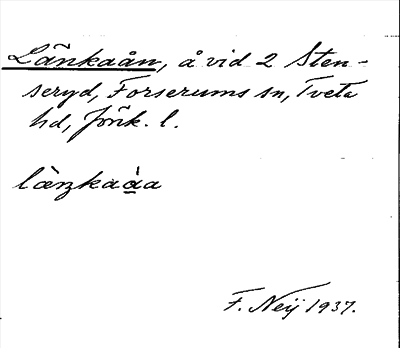 Länkaån, å vid 2 Sten-
seryd, Forserums sn, Tveta
hd, Jönk. l.
làŋkaåa
F. Neij 1937.